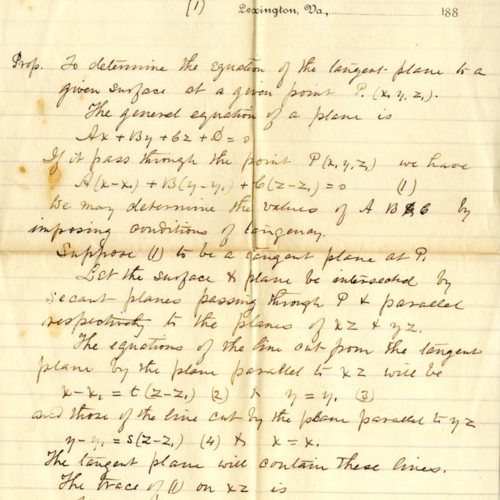 (1) Lexington, Va., 188
Prop. To determine the equation of the tangent plane to a
given surface at a given point P. (x, y, z,).
The general equation of a plane is
Ax + By + Cz + D = 0
If it pass through the point P(x, y, z,) we have
A(x-x,) + B(y-y,) + C(z-z,) = 0 (1)
We may determine the values of A B & C by
imposing conditions of tangency.
Suppose (1) to be a tangent plane at P.
Let the surface & plane be intersected by
secant planes passing through P & parallel
respectively to the planes of xz & yz.
The equations of the line cut from the tangent
plane by the plane parallel to xz will be
x-x, = t(z-z,) (2) & y = y, (3)
and those of the line cut by the plane parallel to yz
y-y, = s(z-z,) (4) & x = x,
The tangent plane will contain these lines.
The trace of (1) on xz is